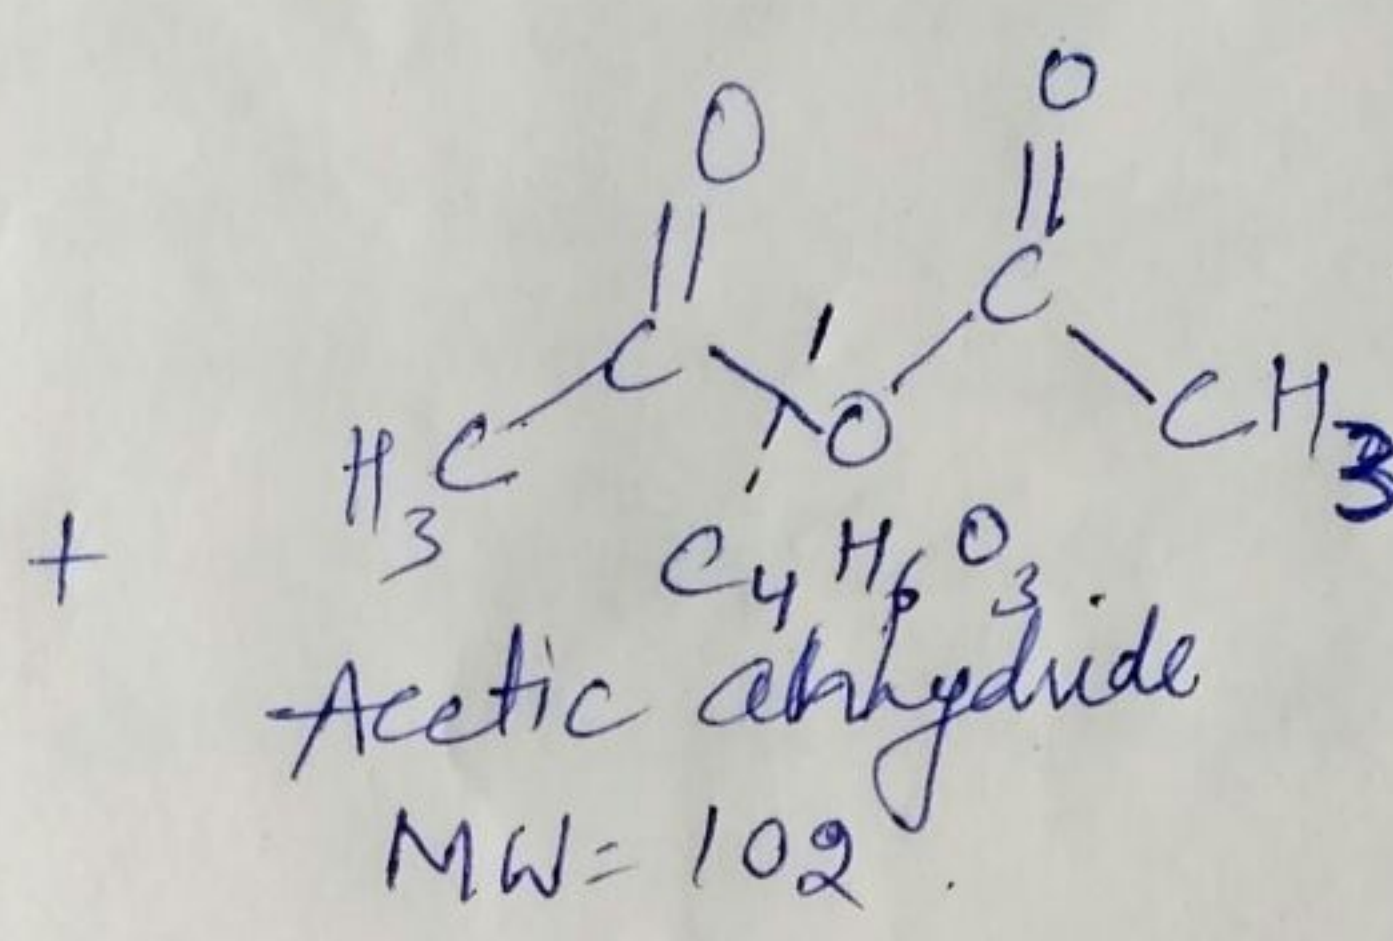 O O
C C
H3C O CH3
+
C4H6O3
Acetic anhydride
MW = 102.